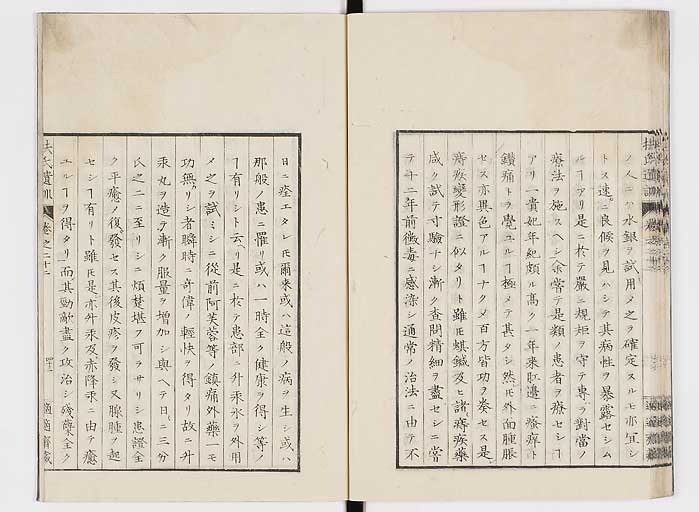 ノ人ニハ水銀ヲ試用メ之ヲ確定スルモ亦宜シ
トス速ニ良候ヲ見ハシテ其病性ヲ暴露セシム
ルヿアリ是ニ於テ嚴ニ規矩ヲ守テ專ラ對當ノ
療法ヲ施スヘシ余常テ是類ノ患者ヲ療セシヿ
アリ一貴妃年紀頗ル高ク二年来肛邊ニ瘙痒ト
鑚痛トヲ覺ユルヿ極メテ甚タシ然モ外面腫脹
セス亦異色アルヿナクメ百方皆功ヲ奏セス是
痔疾變形證ニ似タリト雖モ蜞鍼及ヒ諸痔疾藥
咸ク試テ寸驗ナシ漸ク査問精細ヲ盡セシニ嘗
テ十二年前黴毒ニ感染シ通常ノ治法ニ由テ不
日ニ痊エタレモ爾来或ハ這般ノ病ヲ生シ或ハ
那般ノ患ニ罹リ或ハ一時全ク健康ヲ得シ等ノ
ヿ有リシト云ヘリ是ニ於テ患部ニ升汞水ヲ外用
メ之ヲ試ミシニ從前阿芙蓉等ノ鎮痛外藥一モ
功無リシ者瞬時ニ奇偉ノ輕快ヲ得タリ故ニ升
汞丸ヲ造テ漸ク服量ヲ増加シ與ヘテ日ニ三分
氏之二ニ至リシニ煩楚堪フ可ラサリシ患證全
ク平癒ノ復發セス其後皮疹ヲ發シ又腺腫ヲ起
セシヿ有リト雖モ是亦升汞及赤降汞ニ由テ癒
ユルヿヲ得タリ而其勁敵盡ク攻治シ殘孽全ク
扶氏遺訓
卷之二十二
適適齋藏